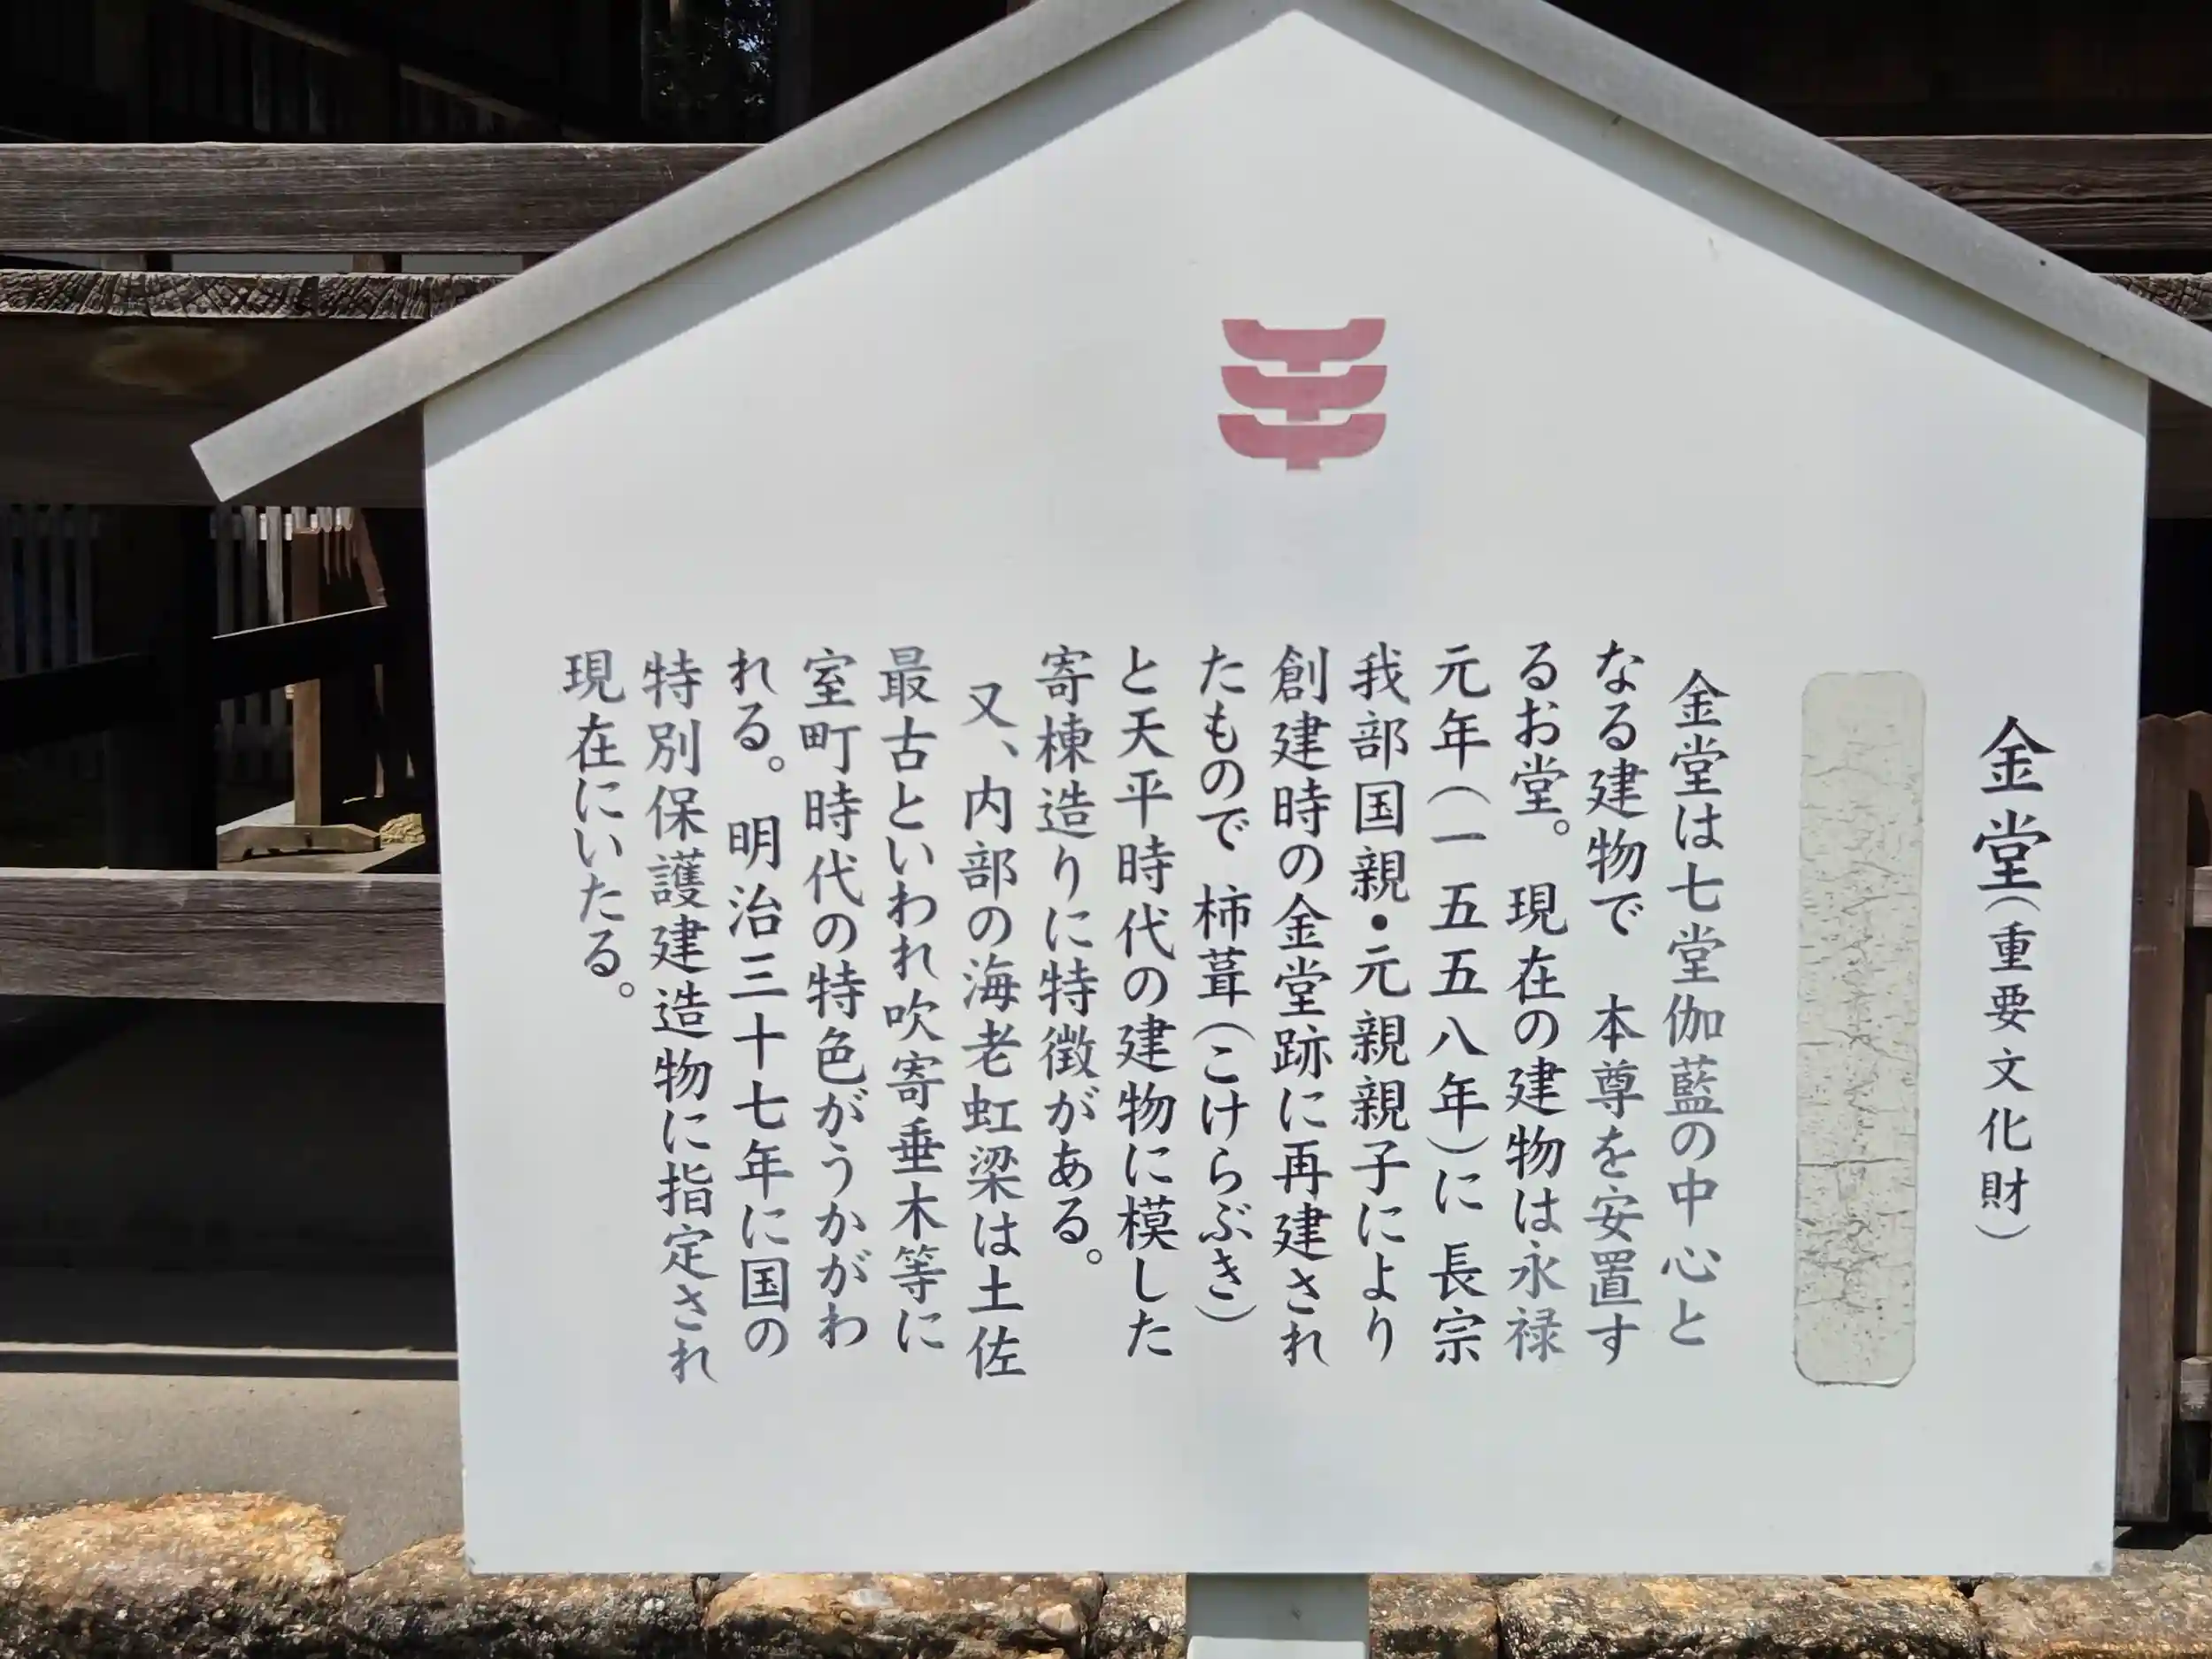 金堂(重要文化財)
金堂は七堂伽藍の中心と
なる建物で 本尊を安置す
るお堂。現在の建物は永禄
元年(一五五八年)に長宗
我部国親・元親親子により
創建時の金堂跡に再建され
たもので 柿葺(こけらぶき)
と天平時代の建物に模した
寄棟造りに特徴がある。
又、内部の海老虹梁は土佐
最古といわれ吹寄垂木等に
室町時代の特色がうかがわ
れる。明治三十七年に国の
特別保護建造物に指定され
現在にいたる。